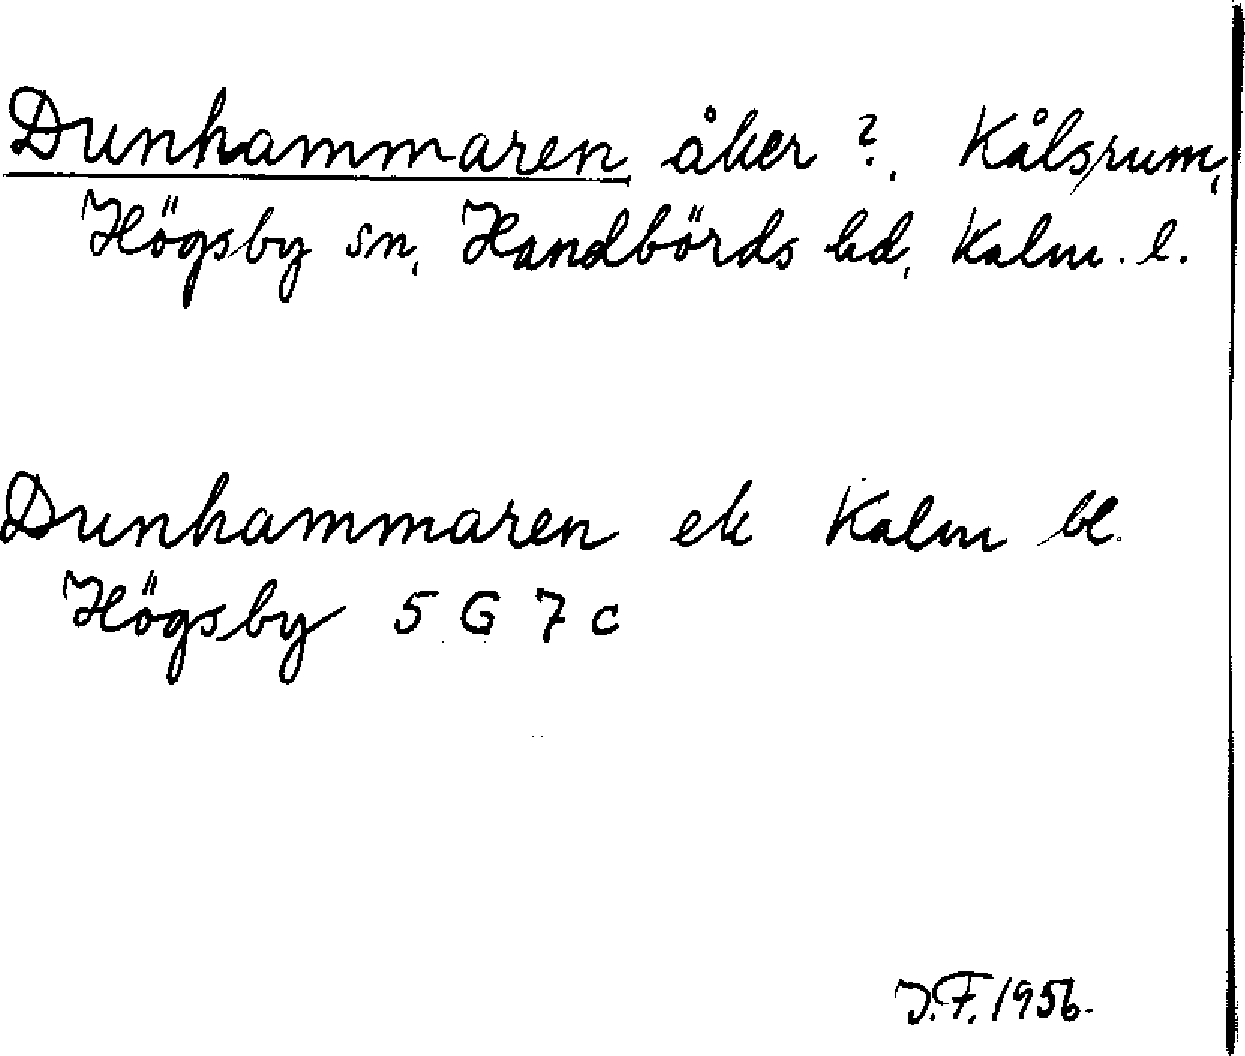 Dunhammaren åker ?, Kålsrum,
Högsby sn, Handbörds hd, Kalm. l.
Dunhammaren ek Kalm bl.
Högsby 5 G 7 c
J.F. 1956.